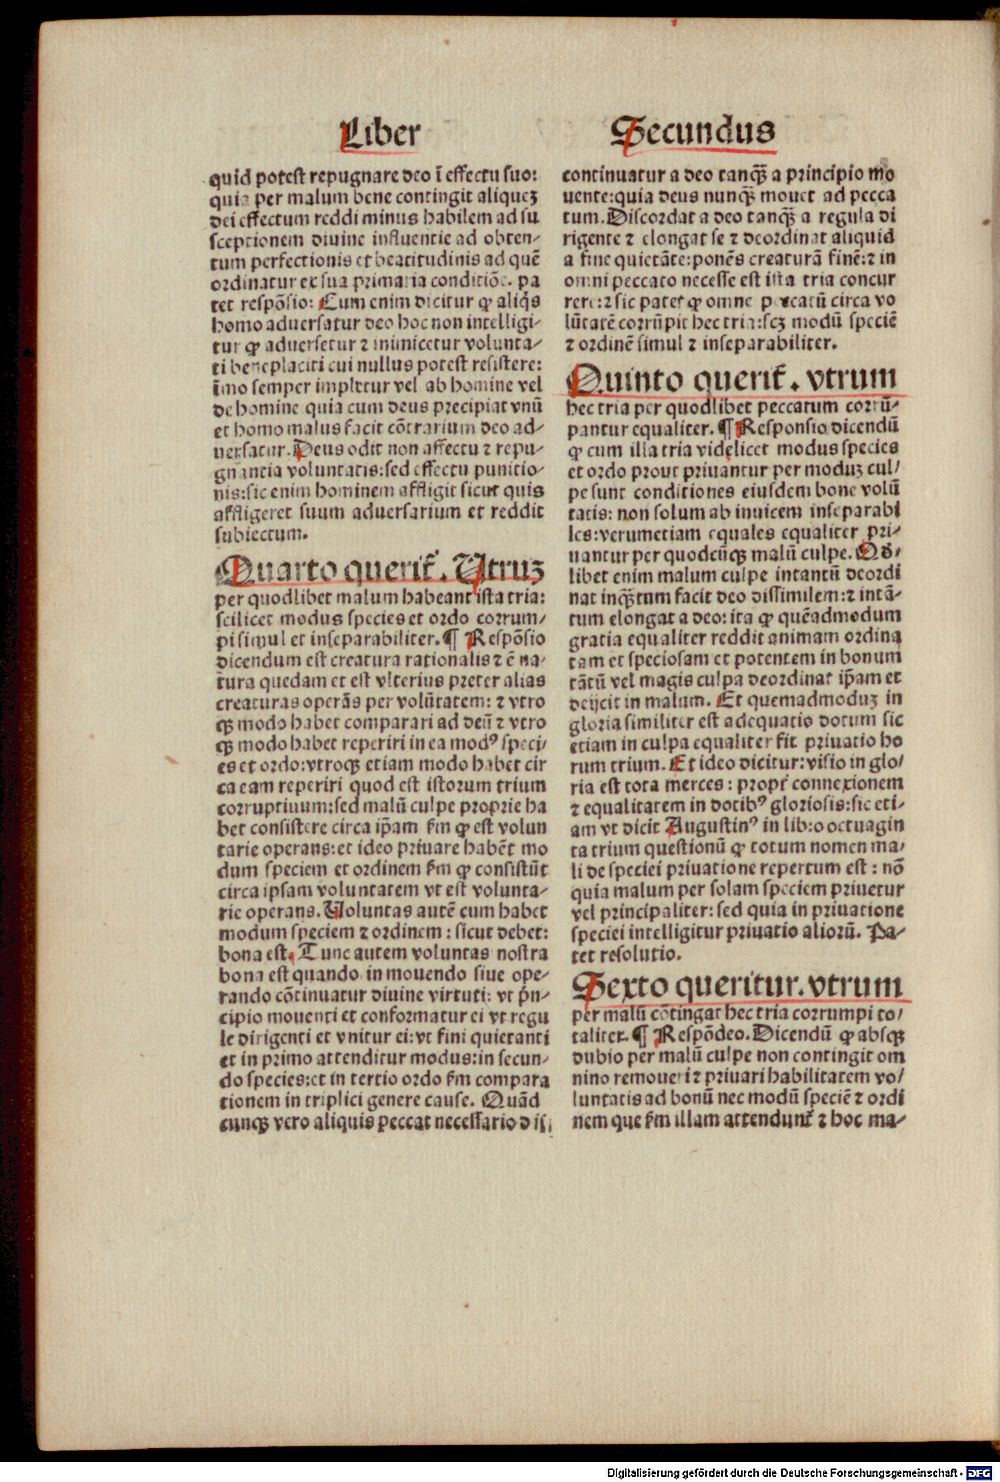 Liber Secundus
quid potest repugnare deo ī effectu suo:
quia per malum bene contingit aliquez
dei effectum reddi minus habilem ad su
sceptionem diuine influentie ad obten-
tum perfectionis et beatitudinis ad quē
ordinatur ex sua primaria conditiōe. pa
tet respōsio: Cum enim dicitur ꝙ aliq̄s
homo aduersatur deo hoc non intelligi-
tur ꝙ aduersetur ⁊ inimicetur volunta-
ti beneplaciti cui nullus potest resistere:
īmo semper impletur vel ab homine vel
de homine quia cum deus precipiat vnū
et homo malus facit cōtrarium deo ad-
uersatur. Deus odit non affectu ⁊ repu-
gnantia voluntatis: sed effectu punitio-
nis: sic enim hominem affligit sicut quis
affligeret suum aduersarium et reddit
subiectum.
Quarto querit̄. Utruz
per quodlibet malum habeant ista tria:
scilicet modus species et ordo corrum-
pi simul et inseparabiliter. ¶ Respōsio
dicendum est creatura rationalis ⁊ ē na-
tura quedam et est vlterius preter alias
creaturas operās per volūtatem: ⁊ vtro
qꝫ modo habet comparari ad deū ⁊ vtro
qꝫ modo habet reperiri in ea modꝰ speci-
es et ordo: vtroqꝫ etiam modo habet cir
ca eam reperiri quod est istorum trium
corruptiuum: sed malū culpe proprie ha
bet consistere circa ip̄am ẜm ꝙ est volun
tarie operans: et ideo priuare habēt mo
dum speciem et ordinem ẜm ꝙ consistūt
circa ipsam voluntatem vt est volunta-
rie operans. Uoluntas autē cum habet
modum speciem ⁊ ordinem: sicut debet:
bona est. Tunc autem voluntas nostra
bona est quando in mouendo siue ope-
rando cōtinuatur diuine virtuti: vt p̄n-
cipio mouenti et conformatur ei vt regu
le dirigenti et vnitur ei: vt fini quietanti
et in primo attenditur modus: in secun-
do species: et in tertio ordo ẜm compara
tionem in triplici genere cause. Quād
cunqꝫ vero aliquis peccat necessario dis
continuatur a deo tanqꝫ̄ a principio mo
uente: quia deus nunqꝫ̄ mouet ad pecca
tum. Discordat a deo tanqꝫ̄ a regula di
rigente ⁊ elongat se ⁊ deordinat aliquid
a fine quietāte: ponēs creaturā finē: ⁊ in
omni peccato necesse est ista tria concur
rere: ⁊ sic patet ꝙ omne peccatū circa vo
lūtatē corrūpit hec tria: scꝫ modū speciē
⁊ ordinē simul ⁊ inseparabiliter.
Quinto querit̄. vtrum
hec tria per quodlibet peccatum corrū-
pantur equaliter. ¶ Responsio dicendū
ꝙ cum illa tria videlicet modus species
et ordo prout priuantur per moduz cul/
pe sunt conditiones eiusdem bone volū
tatis: non solum ab inuicem inseparabi
les: verumetiam equales equaliter pri-
uantur per quodcūqꝫ malū culpe. Qđ/
libet enim malum culpe intantū deordi
nat inqꝫ̄tum facit deo dissimilem: ⁊ intā-
tum elongat a deo: ita ꝙ quēadmodum
gratia equaliter reddit animam ordina
tam et speciosam et potentem in bonum
tātū vel magis culpa deordinat ip̄am et
deijcit in malum. Et quemadmoduz in
gloria similiter est adequatio dotum sic
etiam in culpa equaliter fit priuatio ho
rum trium. Et ideo dicitur: visio in glo/
ria est tota merces: propt̄ connexionem
⁊ equalitatem in dotibꝰ gloriosis: sic eti-
am vt dicit Augustinꝰ in libro octuagin
ta trium questionū ꝙ totum nomen ma/
li de speciei priuatione repertum est: nō
quia malum per solam speciem priuetur
vel principaliter: sed quia in priuatione
speciei intelligitur priuatio aliorū. Pa-
tet resolutio.
Sexto queritur. vtrum
per malū cōtingat hec tria corrumpi to/
taliter. ¶ Respōdeo. Dicendū ꝙ absqꝫ
dubio per malū culpe non contingit om
nino remoueri ⁊ priuari habilitatem vo/
luntatis ad bonū nec modū speciē ⁊ ordi
nem que ẜm illam attendunt̄ ⁊ hoc ma-
Digitalisierung gefördert durch die Deutsche Forschungsgemeinschaft - DFG